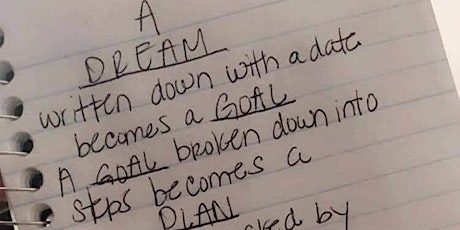 A
DREAM
written down with a date
becomes a GOAL
A GOAL broken down into
steps becomes a
PLAN
by